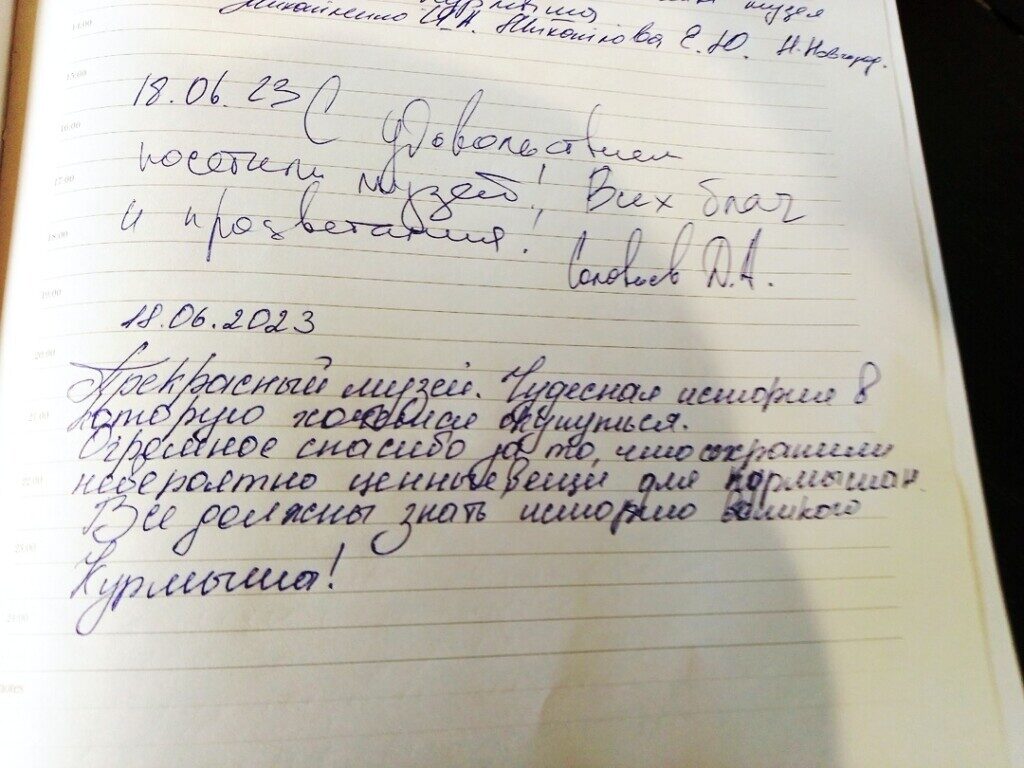 музея
Н. Новгород.
14:00
15:00
18.06.23 С удовольствием
16:00
посетили музей! Всех благ
17:00
и процветания!
18:00
Соловьев Д.А.
19:00
18.06.2023
20:00
Прекрасный музей. Чудесная история в
21:00
которую хочется окунуться.
Огромное спасибо за то, что сохранили
22:00
невероятно ценные вещи для курмышан.
Все должны знать историю великого
23:00
Курмыша!
24:00
notes